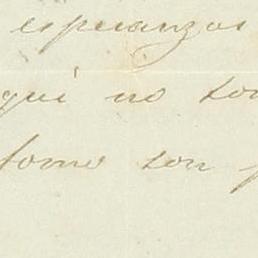 esperanzas
qui no son
tomo son